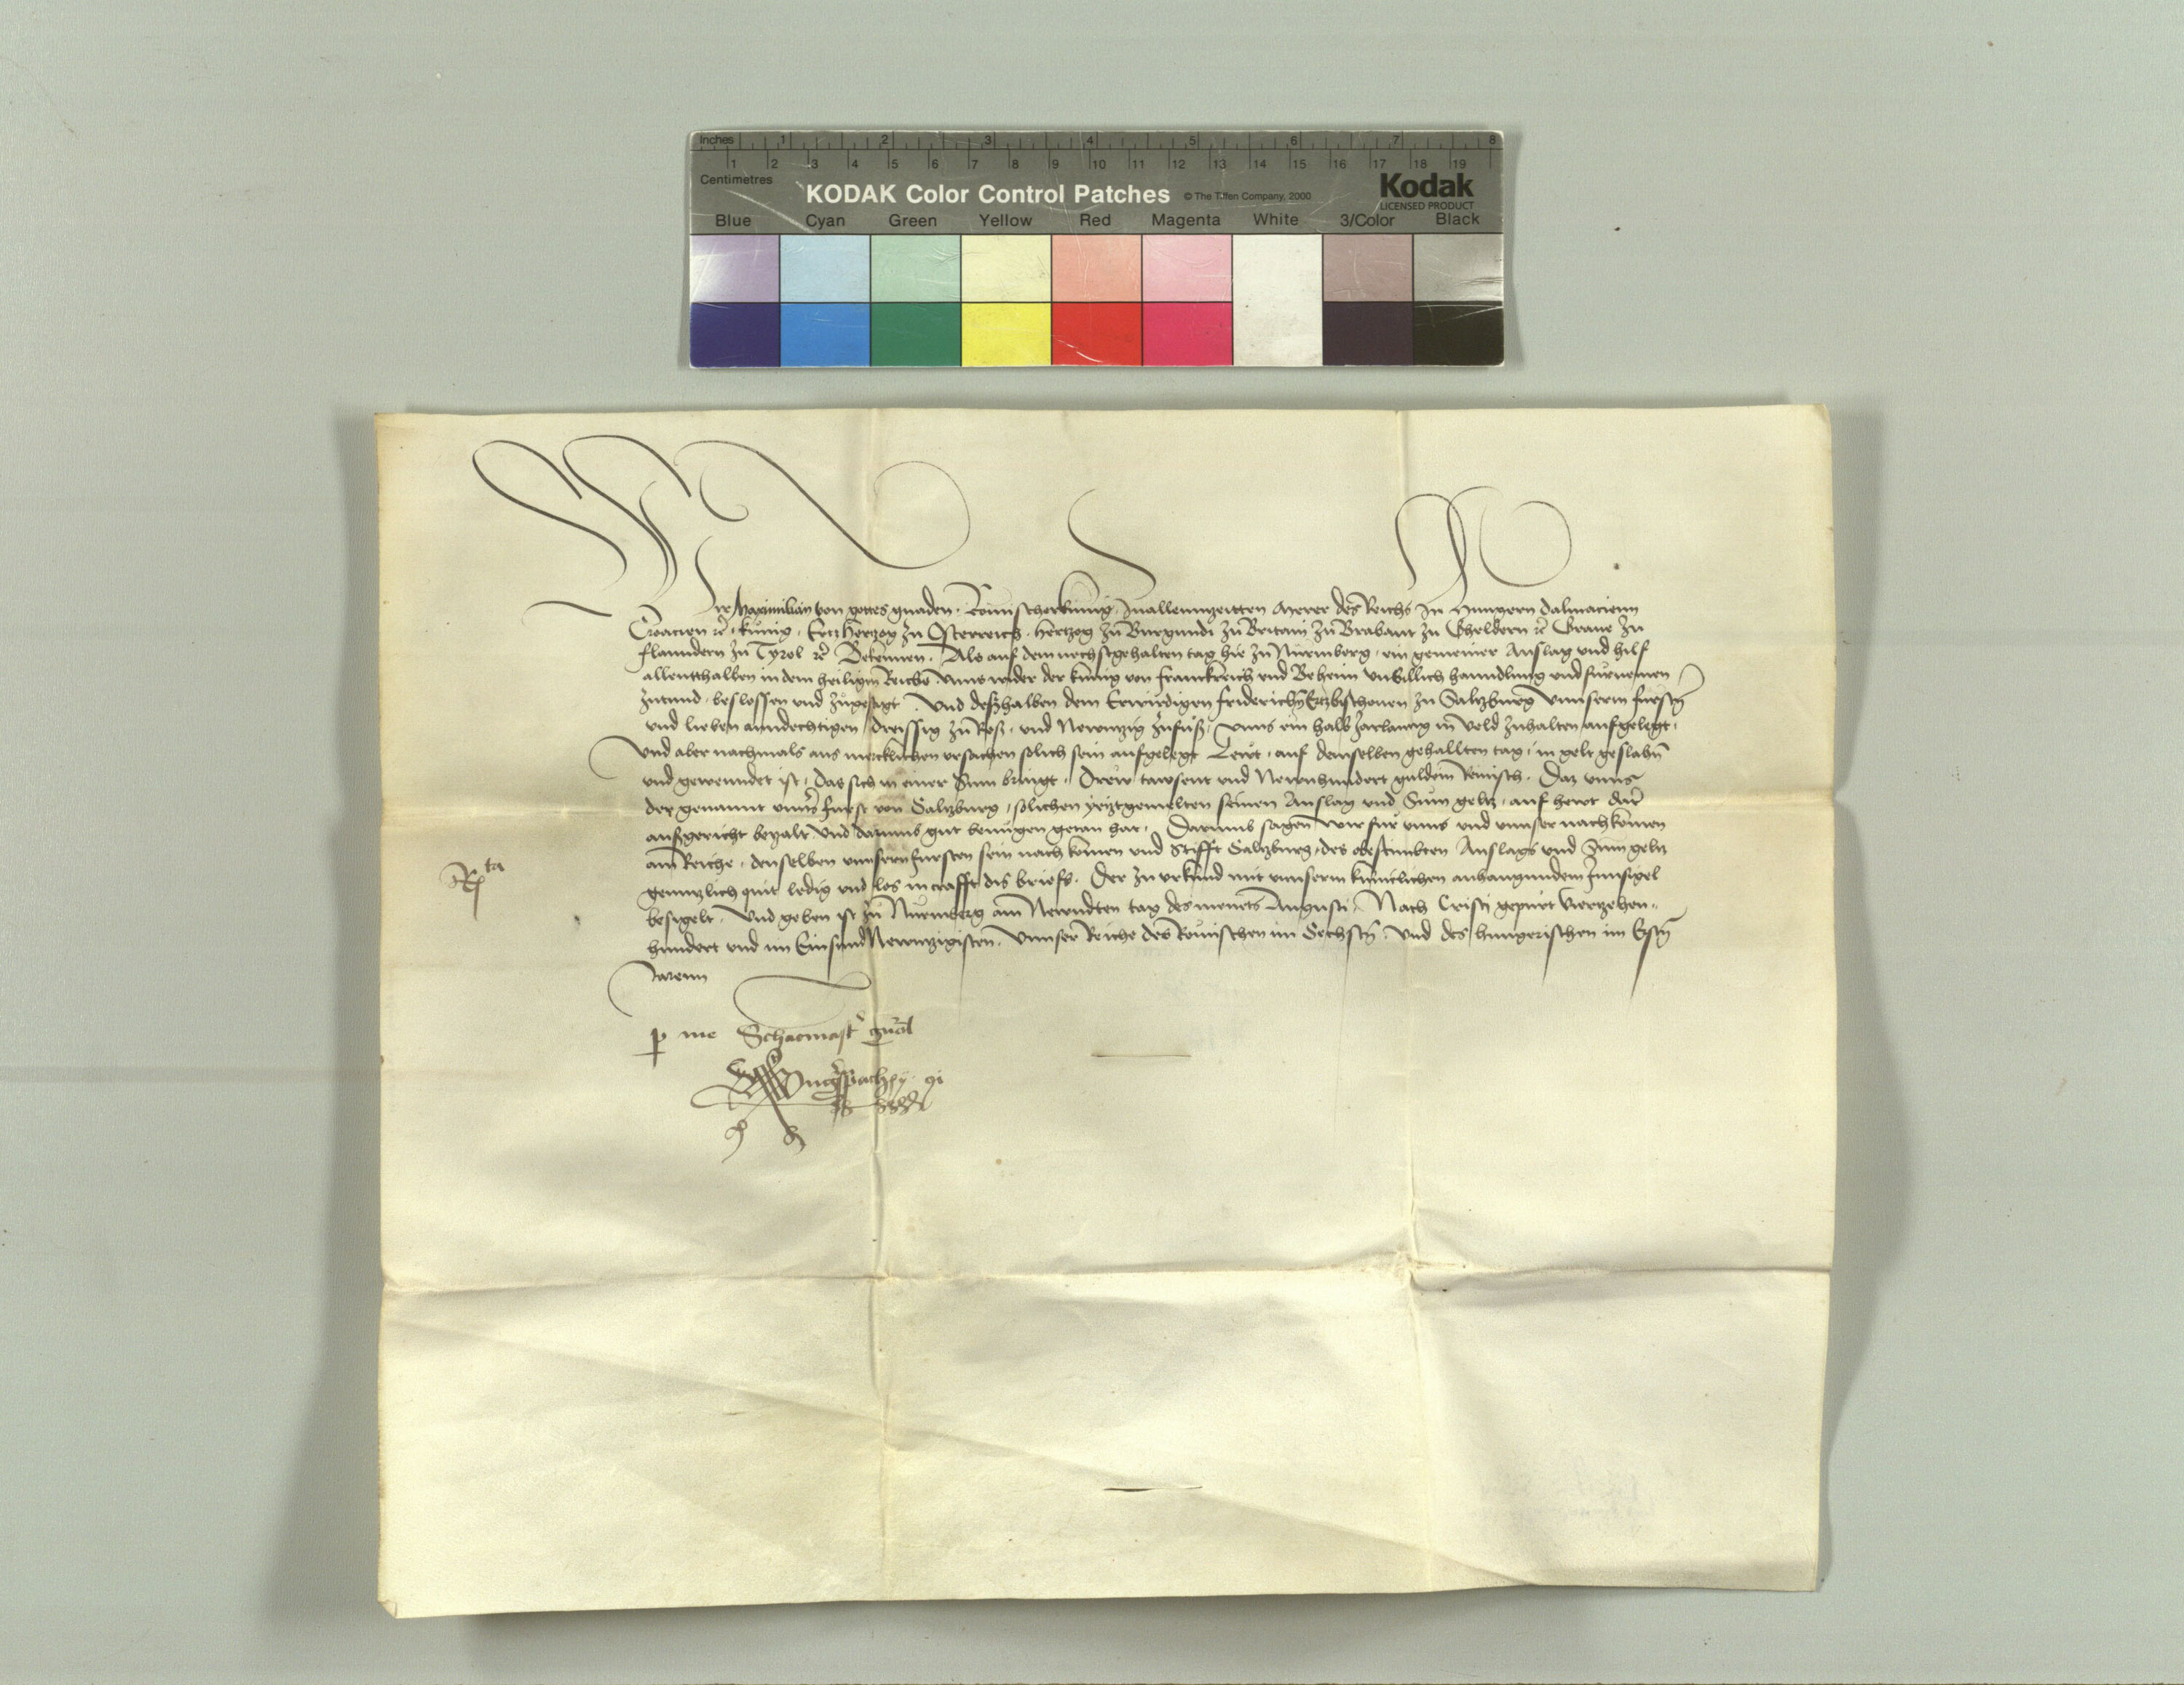 Inches 1 2 3 4 5 6 7 8
1 2 3 4 5 6 7 8 9 10 11 12 13 14 15 16 17 18 19
Centimetres
KODAK Color Control Patches © The Tiffen Company, 2000 Kodak
LICENSED PRODUCT
Blue Cyan Green Yellow Red Magenta White 3/Color Black
Wir Maximilian von gottes gnaden Römischer künig Inallenntzeitten Merer des Reichs In Hungern Dalmacienn
Croacien ꝛc künig Ertzhertzog zu Österreich hertzog zu Burgundi zu Britani zu Brabannt zu Gheldern ꝛc Graue zu
flanndern zu Tyrol ꝛc Bekennen Als auf dem nechstgehalten tag hie zu Nüremberg ein gemeiner Anslag vnd hilf
allentthalben in dem heiligen Reiche vnns wider der künig von Franckreich vnd Beheim vnbillich hanndlung vnd fürnemen
zutund beslossen vnd zugesagt Vnd deszhalben dem Erwirdigen Friderichen Ertzbischouen zu Saltzburg vnnserm fürsten
vnd lieben anndechtigen dreissig zu Ross vnd Newntzig zufuss vnns ein halb Jarlanng in veld zuhalten aufgelegt
Vnd aber nachmals aus mercklichen vrsachen solich sein aufgelegt Lewt auf demselben gehallten tag in gelt geslahn
vnd gewenndet ist das sich in einer Sum bringt Drew tawsent vnd Newnhundert guldein Reinisch Daz vnns
der genannt vnnser fürst von Saltzburg solichen yetzgemelten seinen Anslag vnd Sum geltz auf hewt dat
aufgericht betzalt vnd darumb gut benügen getan hat Darumb sagen wir für vnns vnd vnnser nachkomen
am Reiche denselben vnnsern fürsten sein nachkomen vnd Stifft Saltzburg des obestimbten Anslags vnd Sum geltz
genntzlich quit ledig vnd los in crafft dis briefs Der zu vrkund mit vnnserm küniclichen anhanngundem Innsigel
besigelt Vnd geben ist zu Nüremberg am Newndten tag des monets Augusti Nach Cristi gepürt Viertzehen
hundert vnd im Einsundnewntzigisten Vnnser Reiche des Römischen im Sechsten vnd des hungerischen im Ersten
Jarenn
Rta
p me Schatzmaistr gnral